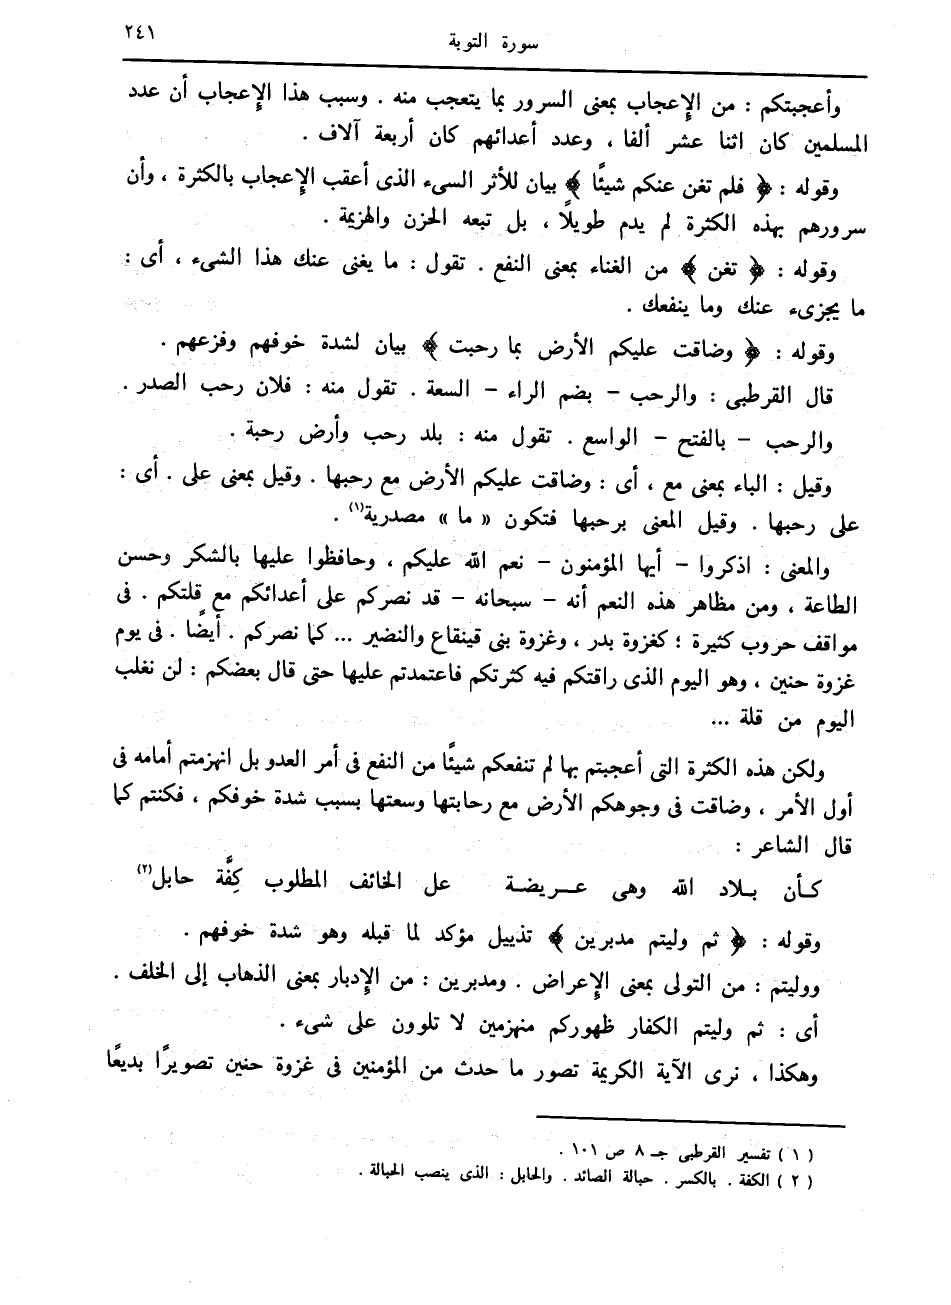 سورة التوبة
٢٤١
وأعجبتكم : من الإعجاب بمعنى السرور بما يتعجب منه . وسبب هذا الإعجاب أن عدد
المسلمين كان اثنا عشر ألفا ، وعدد أعدائهم كان أربعة آلاف .
وقوله : ﴿ فلم تغن عنكم شيئًا ﴾ بيان للأثر السىء الذى أعقب الإعجاب بالكثرة ، وأن
سرورهم بهذه الكثرة لم يدم طويلًا ، بل تبعه الحزن والهزيمة .
وقوله : ﴿ تغن ﴾ من الغناء بمعنى النفع . تقول : ما يغنى عنك هذا الشىء ، أى :
ما يجزىء عنك وما ينفعك .
وقوله : ﴿ وضاقت عليكم الأرض بما رحبت ﴾ بيان لشدة خوفهم وفزعهم .
قال القرطبى : والرحب – بضم الراء – السعة . تقول منه : فلان رحب الصدر .
والرحب – بالفتح – الواسع . تقول منه : بلد رحب وأرض رحبة .
وقيل : الباء بمعنى مع ، أى : وضاقت عليكم الأرض مع رحبها . وقيل بمعنى على . أى :
على رحبها . وقيل المعنى برحبها فتكون « ما » مصدرية(١) .
والمعنى : اذكروا – أيها المؤمنون – نعم الله عليكم ، وحافظوا عليها بالشكر وحسن
الطاعة ، ومن مظاهر هذه النعم أنه – سبحانه – قد نصركم على أعدائكم مع قلتكم . فى
مواقف حروب كثيرة ؛ كغزوة بدر ، وغزوة بنى قينقاع والنضير ... كما نصركم . أيضًا . فى يوم
غزوة حنين ، وهو اليوم الذى راقتكم فيه كثرتكم فاعتمدتم عليها حتى قال بعضكم : لن نغلب
اليوم من قلة ...
ولكن هذه الكثرة التى أعجبتم بها لم تنفعكم شيئًا من النفع فى أمر العدو بل انهزمتم أمامه فى
أول الأمر ، وضاقت فى وجوهكم الأرض مع رحابتها وسعتها بسبب شدة خوفكم ، فكنتم كما
قال الشاعر :
كأن بلاد الله وهى عريضة عل الخائف المطلوب كِفَّة حابل(٢)
وقوله : ﴿ ثم وليتم مدبرين ﴾ تذييل مؤكد لما قبله وهو شدة خوفهم .
ووليتم : من التولى بمعنى الإعراض . ومدبرين : من الإدبار بمعنى الذهاب إلى الخلف .
أى : ثم وليتم الكفار ظهوركم منهزمين لا تلوون على شىء .
وهكذا ، نرى الآية الكريمة تصور ما حدث من المؤمنين فى غزوة حنين تصويرًا بديعًا
( ١ ) تفسير القرطبى جـ ٨ ص ١٠١ .
( ٢ ) الكفة . بالكسر . حبالة الصائد . والحابل : الذى ينصب الحبالة .